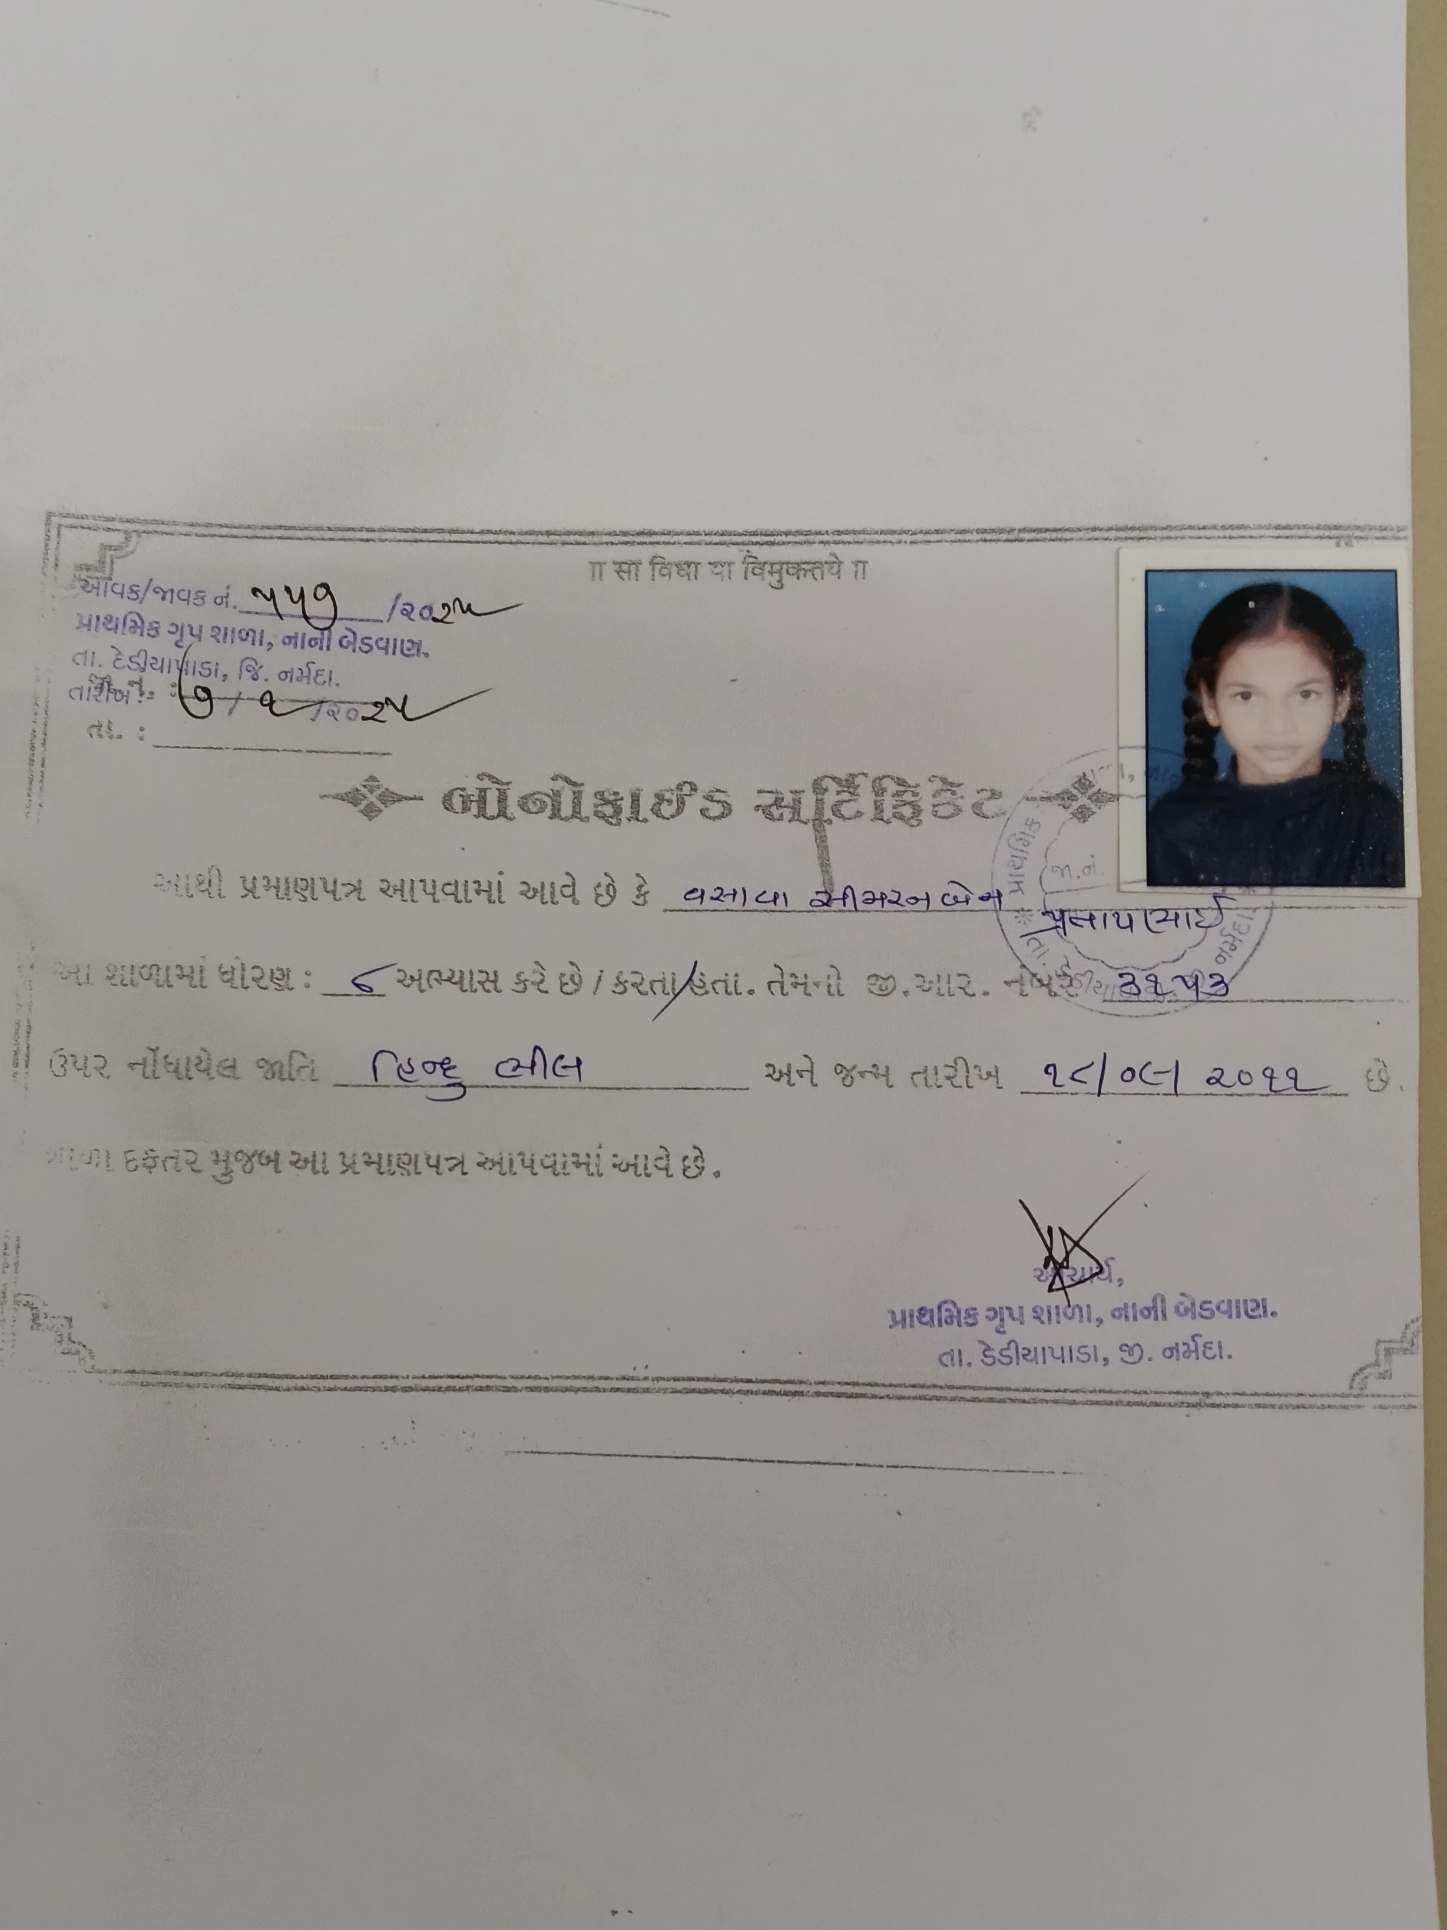 ॥ सा विद्या या विमुक्तये ॥
આવક/જાવક નં. ૫૫૭ /૨૦૨૫
પ્રાથમિક ગૃપ શાળા, નાની બેડવાણ.
તા. દેડીયાપાડા, જિ. નર્મદા.
તારીખ : ૭/૧/૨૦૨૫
તા. :
બોનોફાઈડ સર્ટિફિકેટ
આથી પ્રમાણપત્ર આપવામાં આવે છે કે વસાવા સીમરનબેન
પ્રતાપભાઈ
આ શાળામાં ધોરણ : ૮ અભ્યાસ કરે છે / કરતા/હતા. તેમનો જી.આર. નંબર ૩૧૫૩
ઉપર નોંધાયેલ જાતિ હિન્દુ ભીલ અને જન્મ તારીખ ૧૮/૦૯/૨૦૧૧ છે.
શાળા દફતર મુજબ આ પ્રમાણપત્ર આપવામાં આવે છે.
આચાર્ય,
પ્રાથમિક ગૃપ શાળા, નાની બેડવાણ.
તા. ડેડીયાપાડા, જી. નર્મદા.